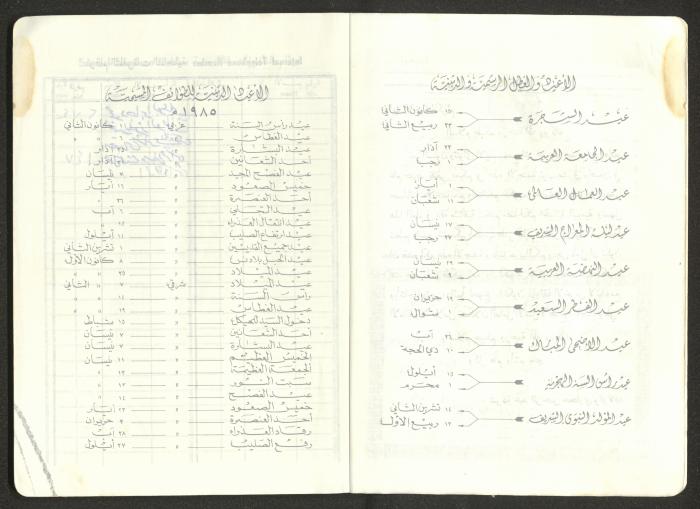 الأعياد والعطل الرسمية والدينية
عيد الشجرة ١٥ كانون الثاني
٢٣ ربيع الثاني
عيد الجامعة العربية ٢٢ آذار
١ رجب
عيد العمال العالمي ١ أيار
١١ شعبان
عيد ليلة المعراج الشريف ١٧ نيسان
٢٧ رجب
عيد النهضة العربية ٢٩ نيسان
٩ شعبان
عيد الفطر السعيد ١٩ حزيران
١ شوال
عيد الأضحى المبارك ٢٦ آب
١٠ ذي الحجة
عيد رأس السنة الهجرية ١٥ أيلول
١ محرم
عيد المولد النبوي الشريف ١٤ تشرين الثاني
١٢ ربيع الأول
الأعياد الدينية للطوائف المسيحية
١٩٨٥م
عيد رأس السنة غربي ١ كانون الثاني
عيد الغطاس " ٦ "
عيد البشارة " آذار
أحد الشعانين " آذار
عيد الفصح المجيد " ٧ نيسان
خميس الصعود " ١٦ أيار
أحد العنصرة " ٢٦ "
عيد التجلي " ٦ آب
عيد انتقال العذراء " ١٥ "
عيد ارتفاع الصليب " ١٤ أيلول
عيد جميع القديسين " ١ تشرين الثاني
عيد الحبل بلا دنس " ٨ كانون الأول
عيد الميلاد " ٢٥ "
عيد الميلاد شرقي ٧ " الثاني
رأس السنة " ١٤ "
عيد الغطاس " ١٩ "
دخول السيد للهيكل " ١٥ شباط
أحد الشعانين " ٧ نيسان
عيد البشارة " ٧ نيسان
الخميس العظيم " ١١ نيسان
الجمعة العظيمة " ١٢ "
سبت النور " ١٣ "
عيد الفصح " ١٤ "
خميس الصعود " ٢٣ أيار
أحد العنصرة " ٢ حزيران
رقاد العذراء " ٢٨ آب
رفع الصليب " ٢٧ أيلول